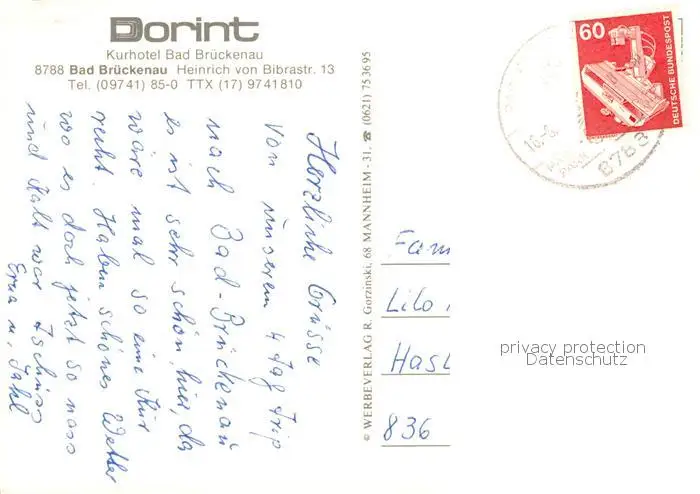 Dorint
Kurhotel Bad Brückenau
8788 Bad Brückenau Heinrich von Bibrastr. 13
Tel. (09741) 85-0 TTX (17) 9741810
Herzliche Grüsse
von unserem 4 Tag Trip
nach Bad-Brückenau
es ist sehr schön hier, da
wäre mal so eine Kur
recht. Haben schönes Wetter
wo es doch jetzt so nass
und kalt war Tschüss
Erna u.
© WERBEVERLAG R. Gorzinski, 68 MANNHEIM - 31, ☎ (0621) 753695
60
DEUTSCHE BUNDESPOST
8788
Fam
Lilo
Hasl
836
privacy protection
Datenschutz